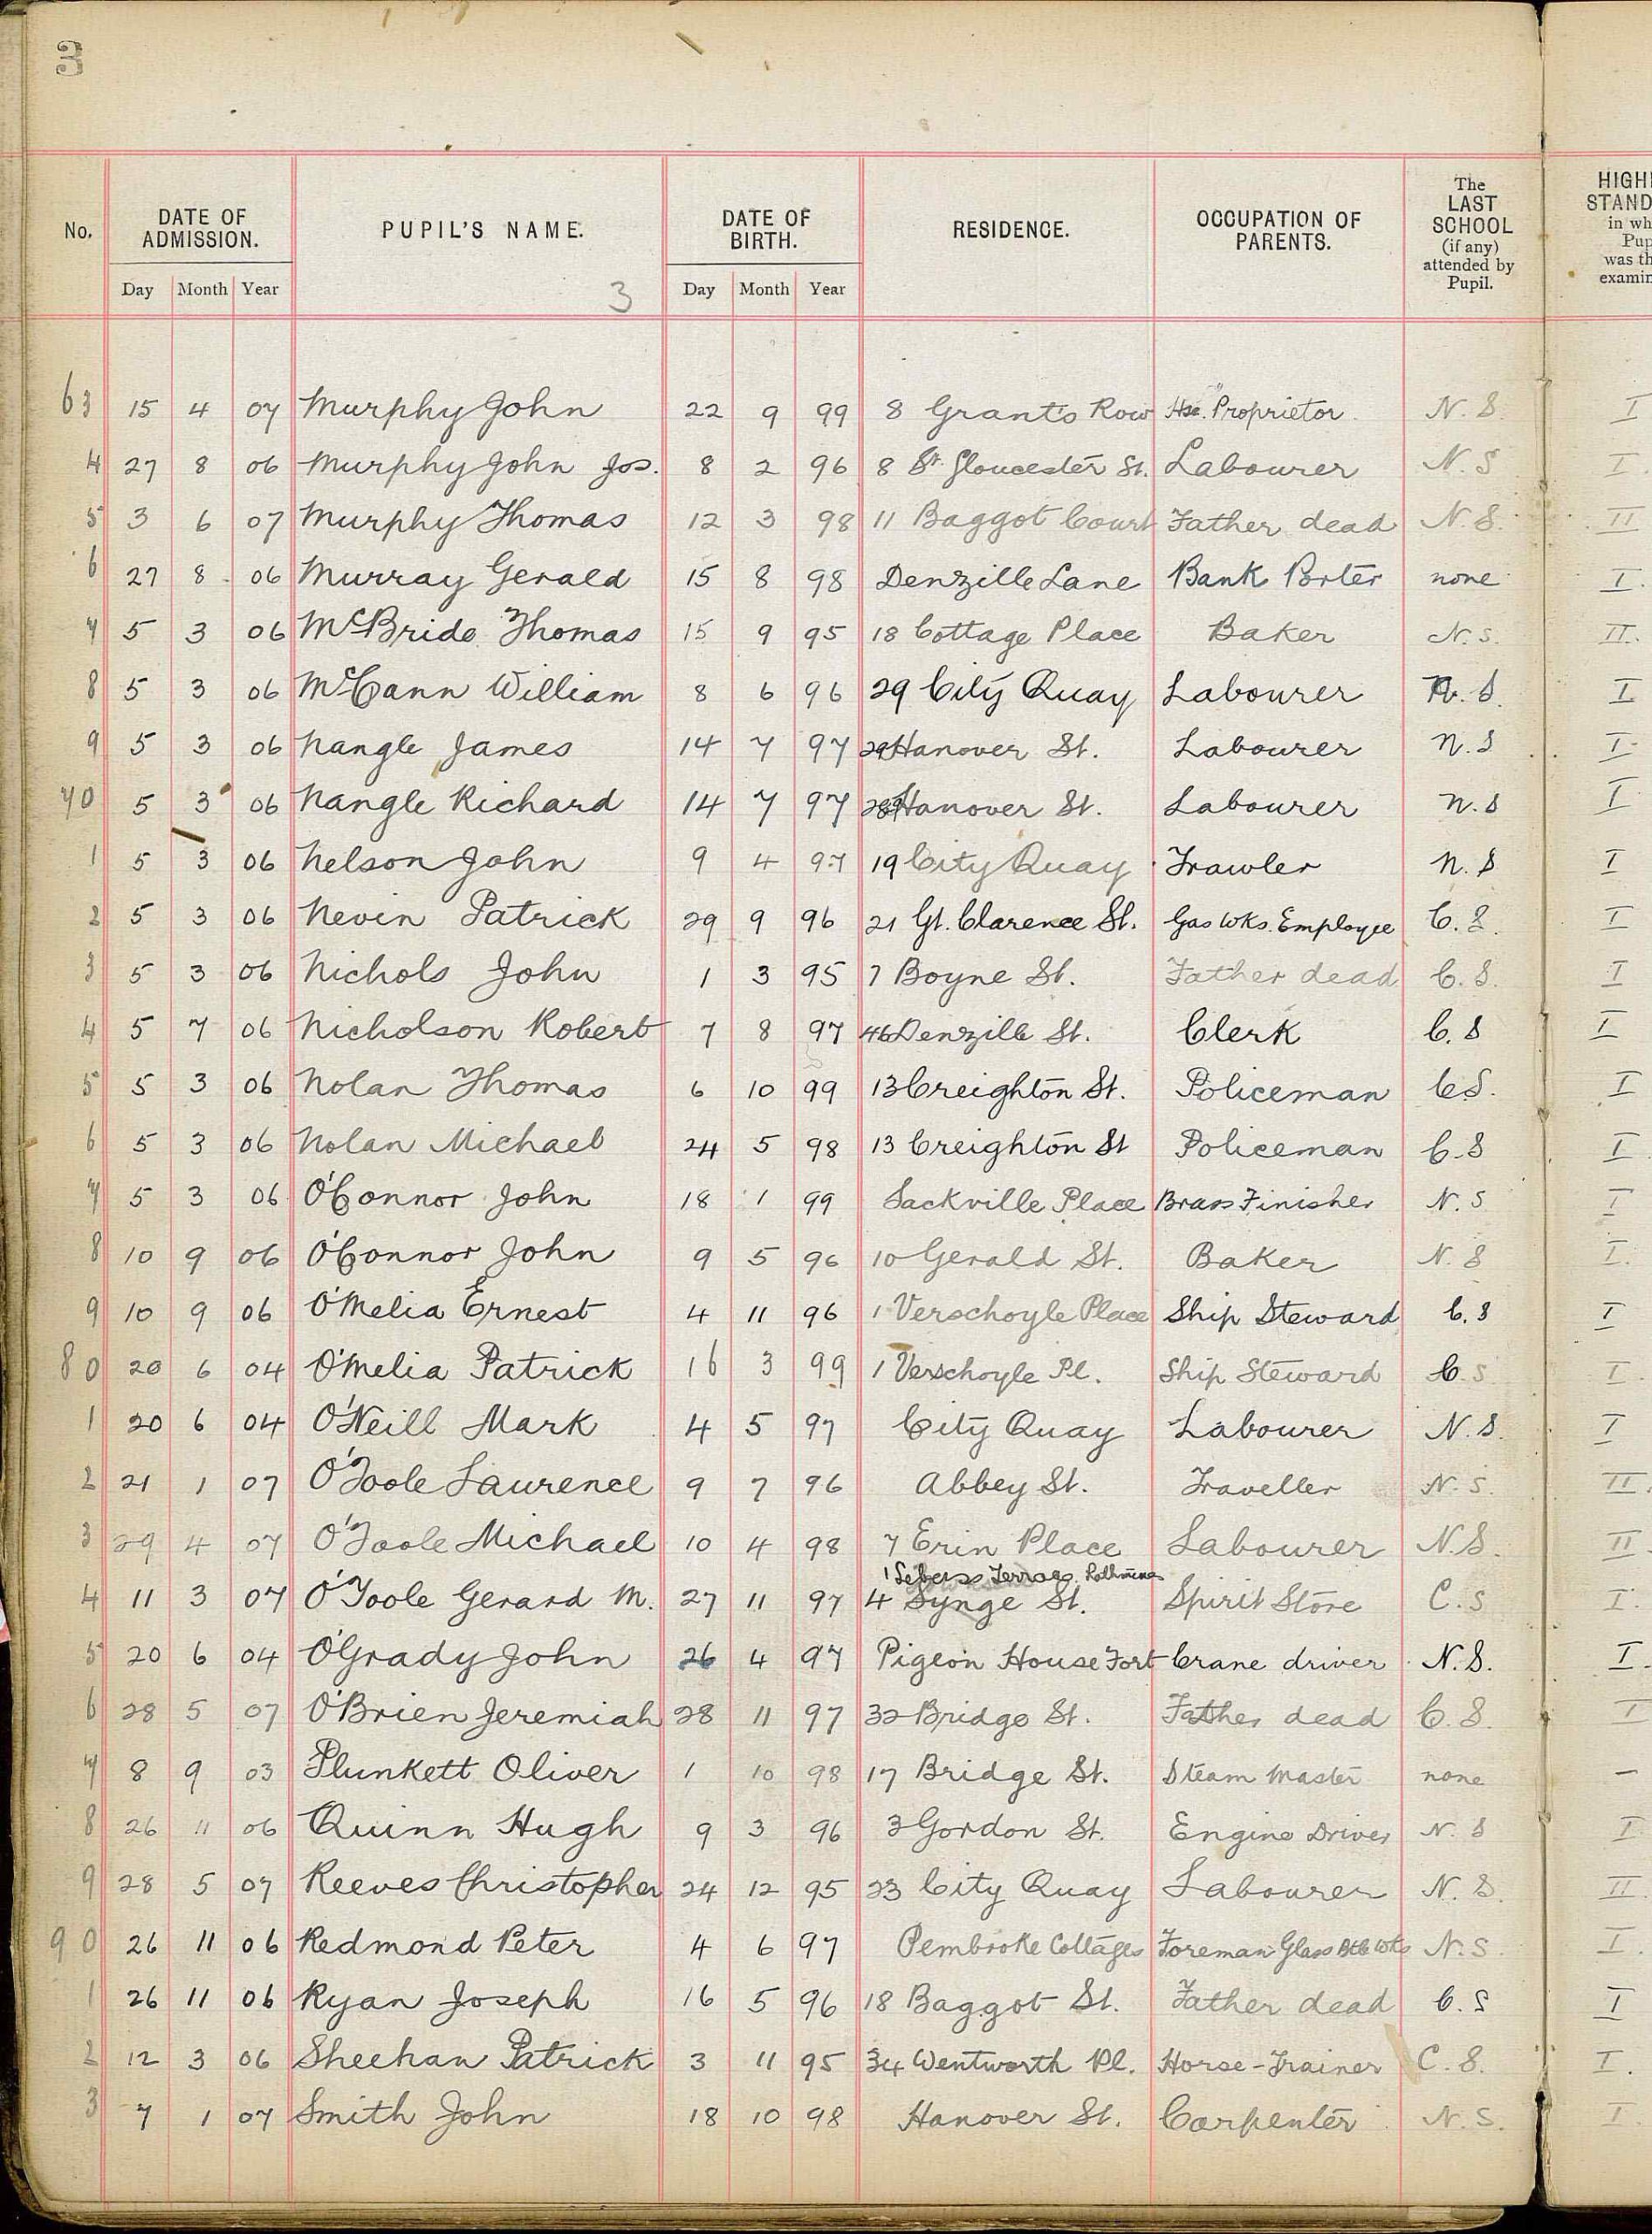 3
No. DATE OF ADMISSION. PUPIL'S NAME. DATE OF BIRTH. RESIDENCE. OCCUPATION OF PARENTS. The LAST SCHOOL (if any) attended by Pupil. HIGH STAND in wh Pup was th examin
Day Month Year 3 Day Month Year
63 15 4 07 Murphy John 22 9 99 8 Grant's Row Hse. Proprietor N. S. I
4 27 8 06 Murphy John Jos. 8 2 96 8 St. Gloucester St. Labourer N. S I
5 3 6 07 Murphy Thomas 12 3 98 11 Baggot Court Father dead N. S. II
6 27 8 06 Murray Gerald 15 8 98 Denzille Lane Bank Porter none I.
7 5 3 06 McBride Thomas 15 9 95 18 Cottage Place Baker N. S. II.
8 5 3 06 McCann William 8 6 96 29 City Quay Labourer N. S. I
9 5 3 06 Nangle James 14 7 97 29 Hanover St. Labourer N. S I
70 5 3 06 Nangle Richard 14 7 97 Hanover St. Labourer N. S I
1 5 3 06 Nelson John 9 4 97 19 City Quay Trawler N. S I
2 5 3 06 Nevin Patrick 29 9 96 21 Gt. Clarence St. Gas Wks. Employee C. S. I
3 5 3 06 Nichols John 1 3 95 7 Boyne St. Father dead C. S. I
4 5 7 06 Nicholson Robert 7 8 97 46 Denzille St. Clerk C. S I
5 5 3 06 Nolan Thomas 6 10 99 13 Creighton St. Policeman C S. I
6 5 3 06 Nolan Michael 24 5 98 13 Creighton St Policeman C. S I
7 5 3 06 O'Connor John 18 1 99 Sackville Place Brass Finisher N. S I
8 10 9 06 O'Connor John 9 5 96 10 Gerald St. Baker N. S I.
9 10 9 06 O'Melia Ernest 4 11 96 1 Verschoyle Place Ship Steward C. S I
80 20 6 04 O'Melia Patrick 16 3 99 1 Verschoyle Pl. Ship Steward C. S I.
1 20 6 04 O'Neill Mark 4 5 97 City Quay Labourer N. S. I
2 21 1 07 O'Toole Laurence 9 7 96 Abbey St. Traveller N. S. II.
3 29 4 07 O'Toole Michael 10 4 98 7 Erin Place Labourer N. S. II
1 Terrace, Rathmines
4 11 3 07 O'Toole Gerard M. 27 11 97 4 Synge St. Spirit Store C. S I.
5 20 6 04 O'Grady John 26 4 97 Pigeon House Fort Crane driver N. S. I.
6 28 5 07 O'Brien Jeremiah 28 11 97 32 Bridge St. Father dead C. S. I
7 8 9 03 Plunkett Oliver 1 10 98 17 Bridge St. Steam Master none —
8 26 11 06 Quinn Hugh 9 3 96 3 Gordon St. Engine Driver N. S I
9 28 5 07 Reeves Christopher 24 12 95 23 City Quay Labourer N. S. II
90 26 11 06 Redmond Peter 4 6 97 Pembroke Cottages Foreman Glass Btle Wks N. S. I.
1 26 11 06 Ryan Joseph 16 5 96 18 Baggot St. Father dead C. S I
2 12 3 06 Sheehan Patrick 3 11 95 34 Wentworth Pl. Horse-Trainer C. S. I.
3 7 1 07 Smith John 18 10 98 Hanover St. Carpenter N. S. I